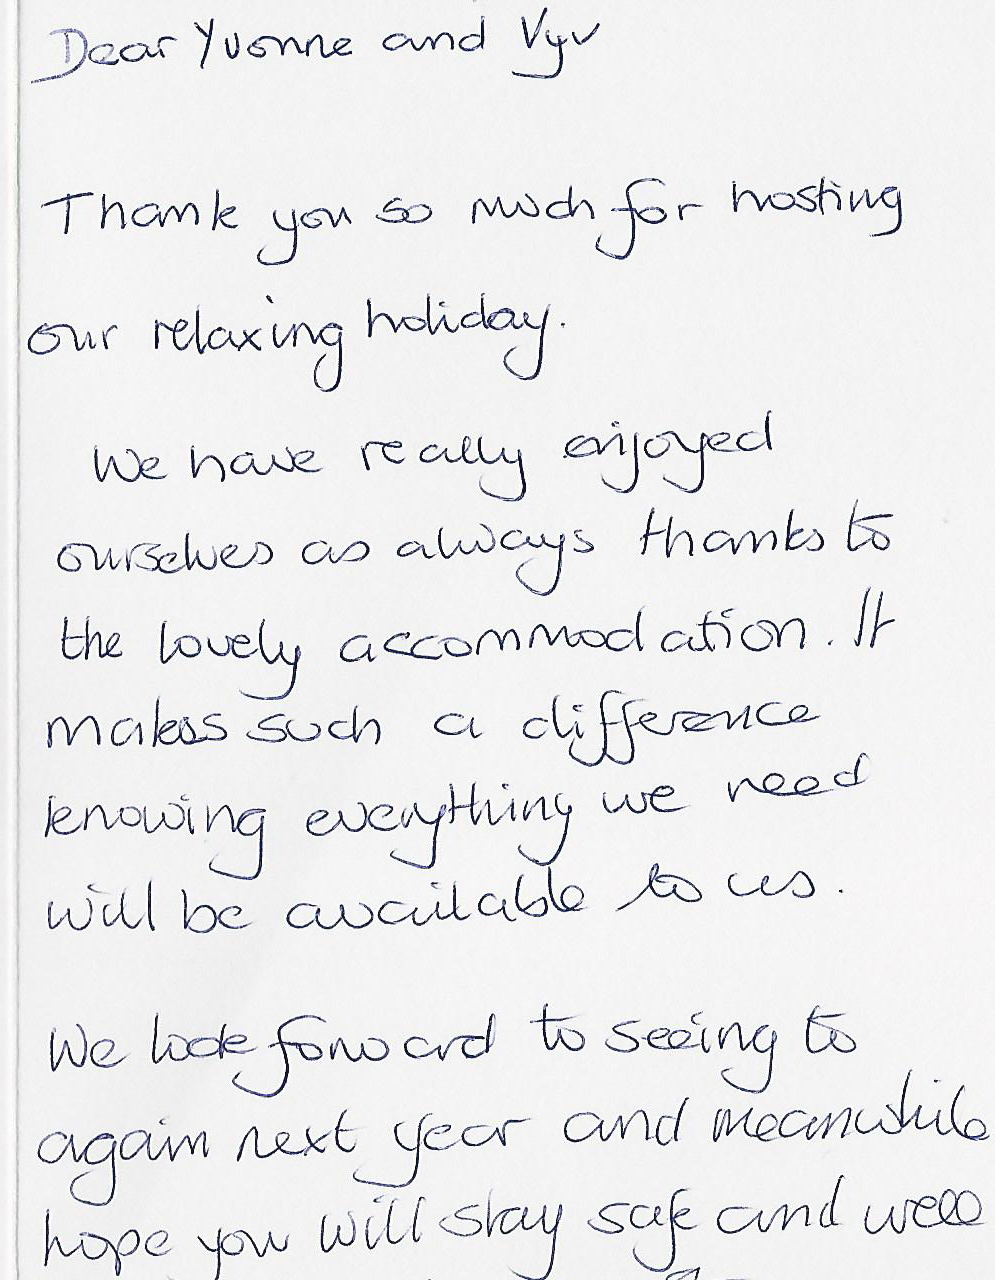 Dear Yvonne and Vyv
Thank you so much for hosting
our relaxing holiday.
We have really enjoyed
ourselves as always thanks to
the lovely accommodation. It
makes such a difference
knowing everything we need
will be available to us.
We look forward to seeing to
again next year and meanwhile
hope you will stay safe and well